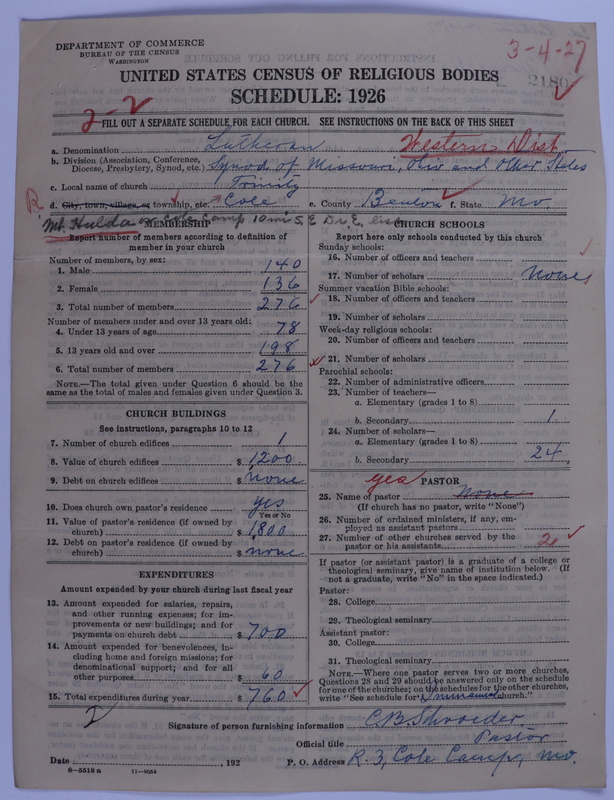 DEPARTMENT OF COMMERCE
BUREAU OF THE CENSUS
WASHINGTON
3-4-27
2180
UNITED STATES CENSUS OF RELIGIOUS BODIES
SCHEDULE: 1926
2-2
FILL OUT A SEPARATE SCHEDULE FOR EACH CHURCH. SEE INSTRUCTIONS ON THE BACK OF THIS SHEET
a. Denomination Lutheran Western Dist.
b. Division (Association, Conference, Diocese, Presbytery, Synod, etc.) Synod of Missouri, Ohio and Other States
c. Local name of church Trinity
d. City, town, village, or township, etc. Cole e. County Benton f. State Mo.
R
Mt. Hulda or Cole Camp 10 mi S.E
MEMBERSHIP
Report number of members according to definition of member in your church
Number of members, by sex:
1. Male 140
2. Female 136
3. Total number of members 276
Number of members under and over 13 years old:
4. Under 13 years of age 78
5. 13 years old and over 198
6. Total number of members 276
NOTE.—The total given under Question 6 should be the same as the total of males and females given under Question 3.
CHURCH BUILDINGS
See instructions, paragraphs 10 to 12
7. Number of church edifices 1
8. Value of church edifices $ 1200
9. Debt on church edifices $ none
10. Does church own pastor's residence yes
Yes or No
11. Value of pastor's residence (if owned by church) $ 1,800
12. Debt on pastor's residence (if owned by church) $ none
EXPENDITURES
Amount expended by your church during last fiscal year
13. Amount expended for salaries, repairs, and other running expenses; for improvements or new buildings; and for payments on church debt $ 700
14. Amount expended for benevolences, including home and foreign missions; for denominational support; and for all other purposes $ 60
15. Total expenditures during year $ 760
CHURCH SCHOOLS
Report here only schools conducted by this church
Sunday schools:
16. Number of officers and teachers
17. Number of scholars none
Summer vacation Bible schools:
18. Number of officers and teachers
19. Number of scholars
Week-day religious schools:
20. Number of officers and teachers
21. Number of scholars
Parochial schools:
22. Number of administrative officers
23. Number of teachers—
a. Elementary (grades 1 to 8)
b. Secondary 1
24. Number of scholars—
a. Elementary (grades 1 to 8)
b. Secondary 24
yes PASTOR
25. Name of pastor None
(If church has no pastor, write "None")
26. Number of ordained ministers, if any, employed as assistant pastors
27. Number of other churches served by the pastor or his assistants
If pastor (or assistant pastor) is a graduate of a college or theological seminary, give name of institution below. (If not a graduate, write "No" in the space indicated.)
Pastor:
28. College
29. Theological seminary
Assistant pastor:
30. College
31. Theological seminary
NOTE.—Where one pastor serves two or more churches, Questions 28 and 29 should be answered only on the schedule for one of the churches; on the schedules for the other churches, write "See schedule for Immanuel church."
Signature of person furnishing information C.B. Shroeder
Official title Pastor
Date , 192 P. O. Address R. 3, Cole Camp, Mo.
8-5518 a 11-9054